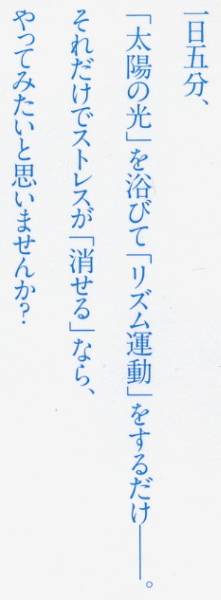 一日五分、
「太陽の光」を浴びて「リズム運動」をするだけ——。
それだけでストレスが「消せる」なら、
やってみたいと思いませんか？